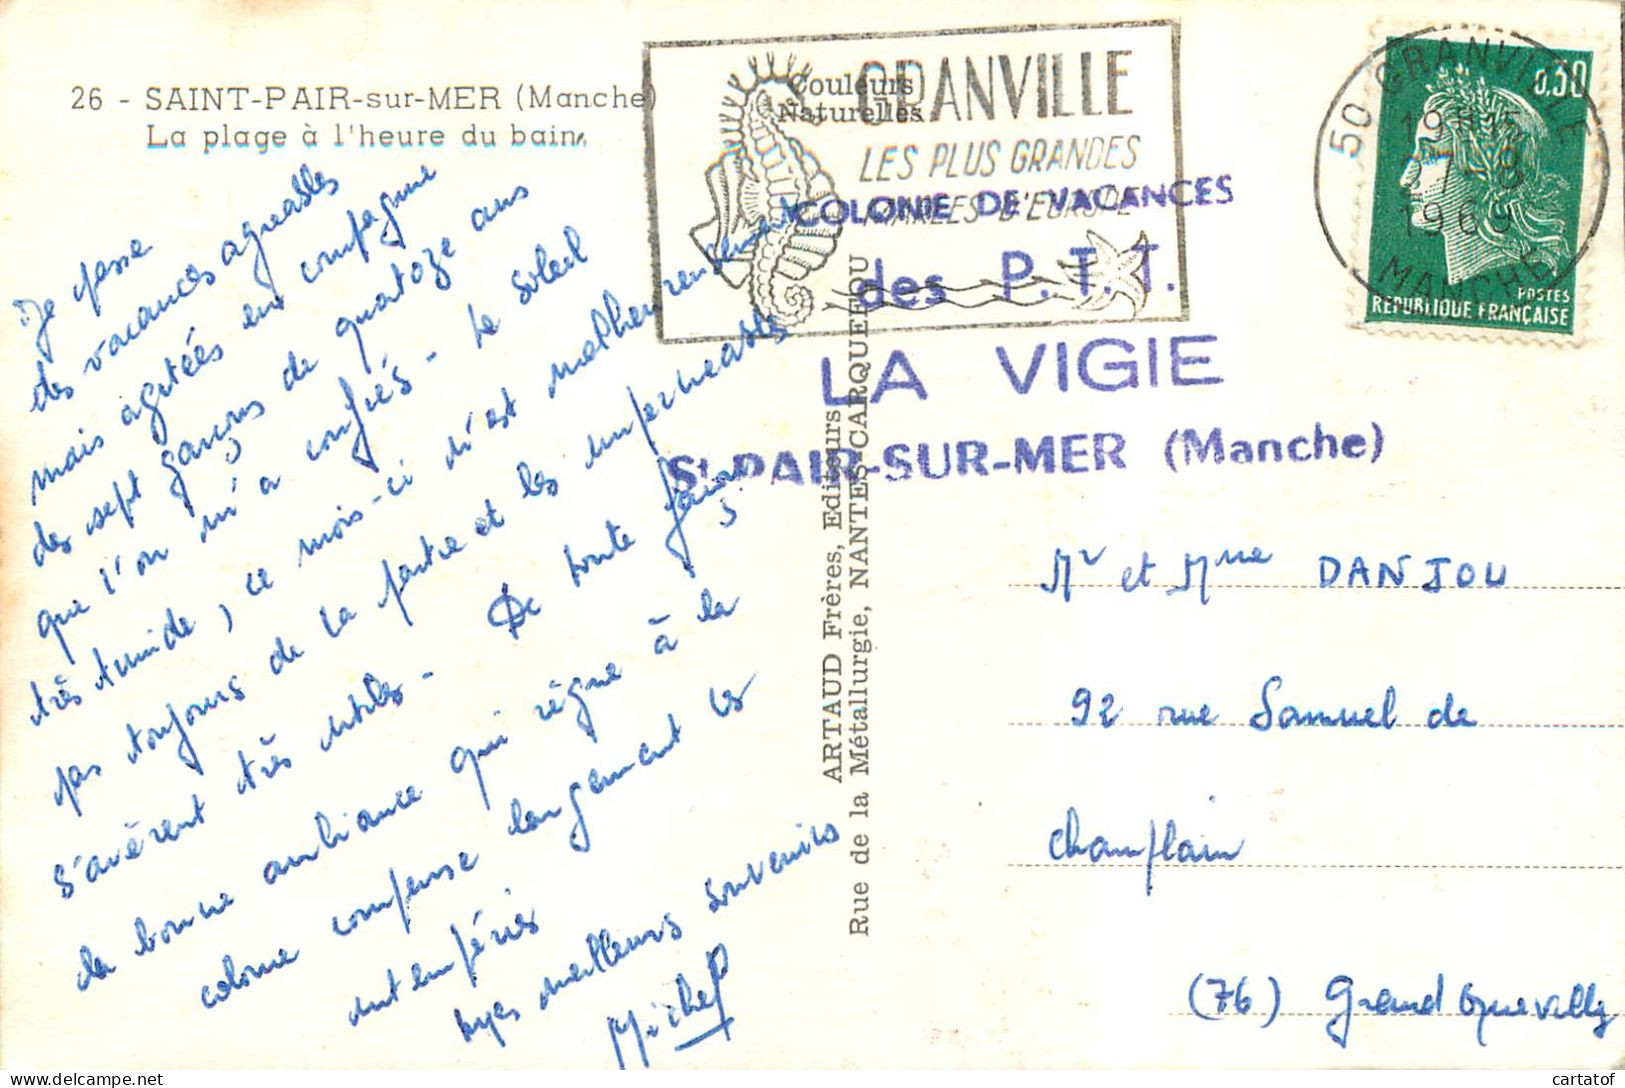 26 - SAINT-PAIR-sur-MER (Manche)
La plage à l'heure du bain
Couleurs
Naturelles
GRANVILLE
LES PLUS GRANDES
MARÉES D'EUROPE
50 GRANVILLE
19H15
27-8
1969
MANCHE
0,30
POSTES
REPUBLIQUE FRANÇAISE
COLONIE DE VACANCES
des P.T.T.
LA VIGIE
St PAIR-SUR-MER (Manche)
Je passe
des vacances agréables
mais agitées en compagnie
des sept garçons de quatorze ans
que l'on m'a confiés - Le soleil
très timide, ce mois-ci n'est malheureusement
pas toujours de la partie et les imperméables
s'avèrent très utiles - De toute façon
la bonne ambiance qui règne à la
colonie compense largement les
intempéries
Mes meilleurs souvenirs
Michel
ARTAUD Frères, Editeurs
Rue de la Métallurgie, NANTES-CARQUEFOU
Mr et Mme DANJOU
92 rue Samuel de
Champlain
(76) Grand Quevilly
cartatof